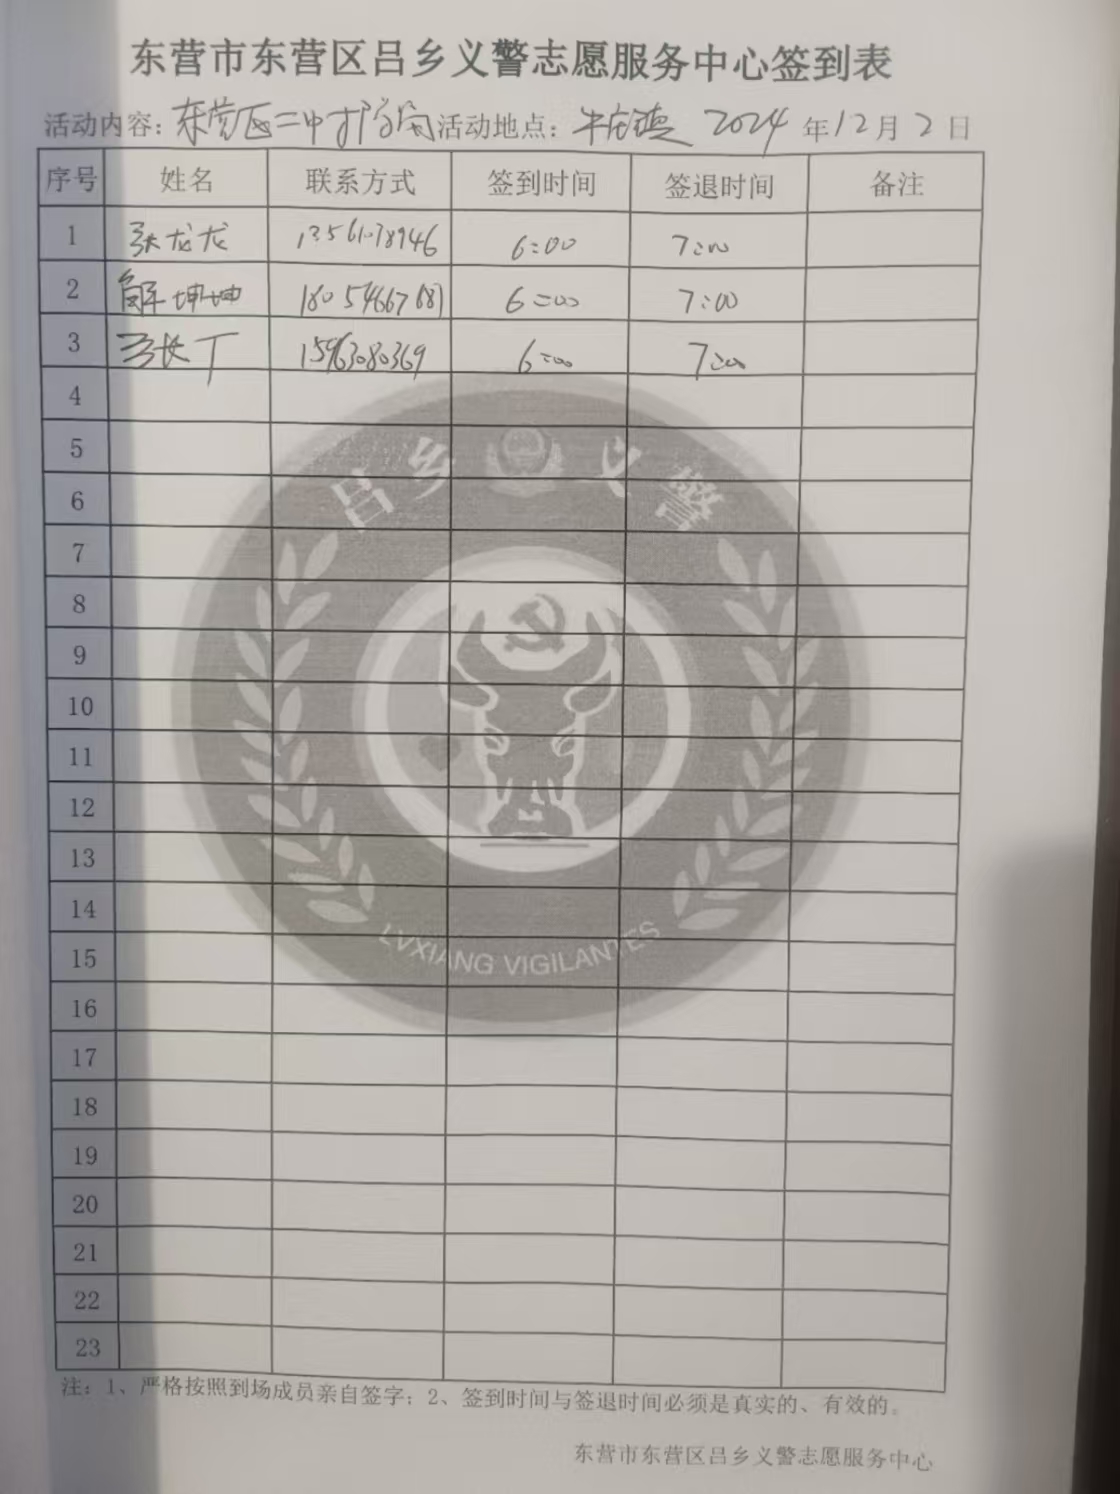 东营市东营区吕乡义警志愿服务中心签到表
活动内容：东营区二中护学岗 活动地点：牛庄镇 2024 年 12 月 2 日
序号 姓名 联系方式 签到时间 签退时间 备注
1 张龙龙 13561078946 6:00 7:00
2 解坤坤 6:00 7:00
3 15963080369 6:00 7:00
4
5
6
7
8
9
10
11
12
13
14
15
16
17
18
19
20
21
22
23
吕乡义警
LVXIANG VIGILANTES
注：1、严格按照到场成员亲自签字；2、签到时间与签退时间必须是真实的、有效的。
东营市东营区吕乡义警志愿服务中心